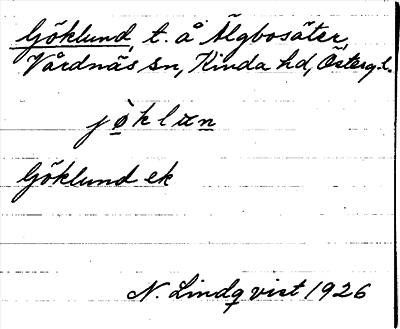 Göklund, t. å Älgbosäter,
Vårdnäs sn, Kinda hd, Österg.l.
jöklæn
Göklund ek
N. Lindqvist 1926